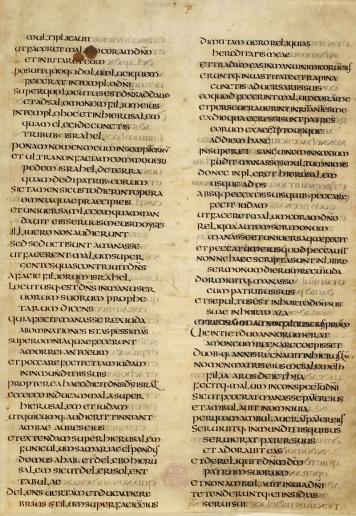 multiplicavit
ut faceret malum coram dno
et inritaret eum
posuitque idolum luci quem
fecerat in templo dni
super quo locutus est dns ad david
et ad salomonem filium eius
in templo hoc et in hierusalem
quam elegi de cunctis
tribubus israhel
ponam nomen meum in sempiternum
et ultra non faciam commoveri
pedem israhel de terra
quam dedi patribus eorum
sic tamen si custodierint opera
omnia quae praecepi eis
et universam legem quam man
davit eis servus meus moyses
illi vero non audierunt
sed seducti sunt a manasse
ut facerent malum super
gentes quas contrivit dns
a facie filiorum israhel
locutusq est dns in manu ser
vorum suorum prophe
tarum dicens
quia fecit manasses rex iuda
abominationes istas pessimas
super omnia quae fecerunt
amorrei ante eum
et peccare fecit etiam iudam
in inmunditiis suis
propterea haec dicit dns ds israhel
ecce ego inducam mala super
hierusalem et iudam
ut quicumq audierit tinniant
ambae aures eius
et extendam super hierusalem
funiculum samariae et pondus
domus ahab et delebo hieru
salem sicut deleri solent
tabulae
delens vertam et ducam cre
brius stilum super faciem eius
dimittam vero reliquias
hereditatis meae
et tradam eas in manu inimicorum eius
eruntq in vastitate et rapina
cunctis adversariis suis
eo quod fecerint malum coram me
et perseveraverint inritantes me
ex die qua egressi sunt patres
eorum ex aegypto usque
ad diem hanc
insuper et sanguinem innoxium
fudit manasses multum nimis
donec impleret hierusalem
usque ad os
absq peccatis suis quibus peccare
fecit iudam
ut faceret malum coram dno
reliqua autem sermonum
manasse et universa quae fecit
et peccatum eius quod peccavit
nonne haec scripta sunt in libro
sermonum dierum regum iuda
dormivitq manasses
cum patribus suis
et sepultus est in horto domus
suae in horto aza
et regnavit amon filius eius pro eo
viginti et duo annorum erat
amon cum regnare coepisset
duobusq annis regnavit in hierusalem
nomen matris eius mesallemeth
filia arus de iethba
fecitq malum in conspectu dni
sicut fecerat manasses pater eius
et ambulavit in omni via
per quam ambulaverat pater eius
servivitq inmunditiis quibus
servierat pater suus
et adoravit eas
et dereliquit dnm dm
patrum suorum
et non ambulavit in via dni
tetenderuntq ei insidias
servi sui